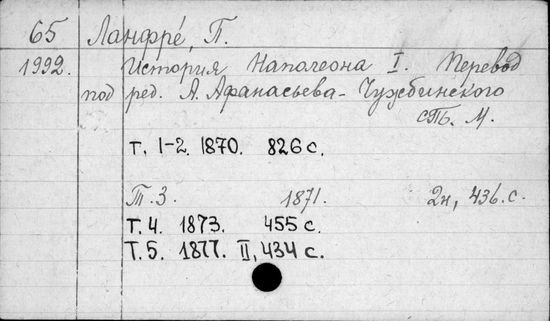 65 Ланфре́, П.
1992. История Наполеона I. Перевод
под ред. А. Афанасьева-Чужбинского
СПб. М.
т. 1-2. 1870. 826 с.
Т. 3. 1871. 2н, 436. с.
Т. 4. 1873. 455 с.
Т. 5. 1877. II, 434 с.